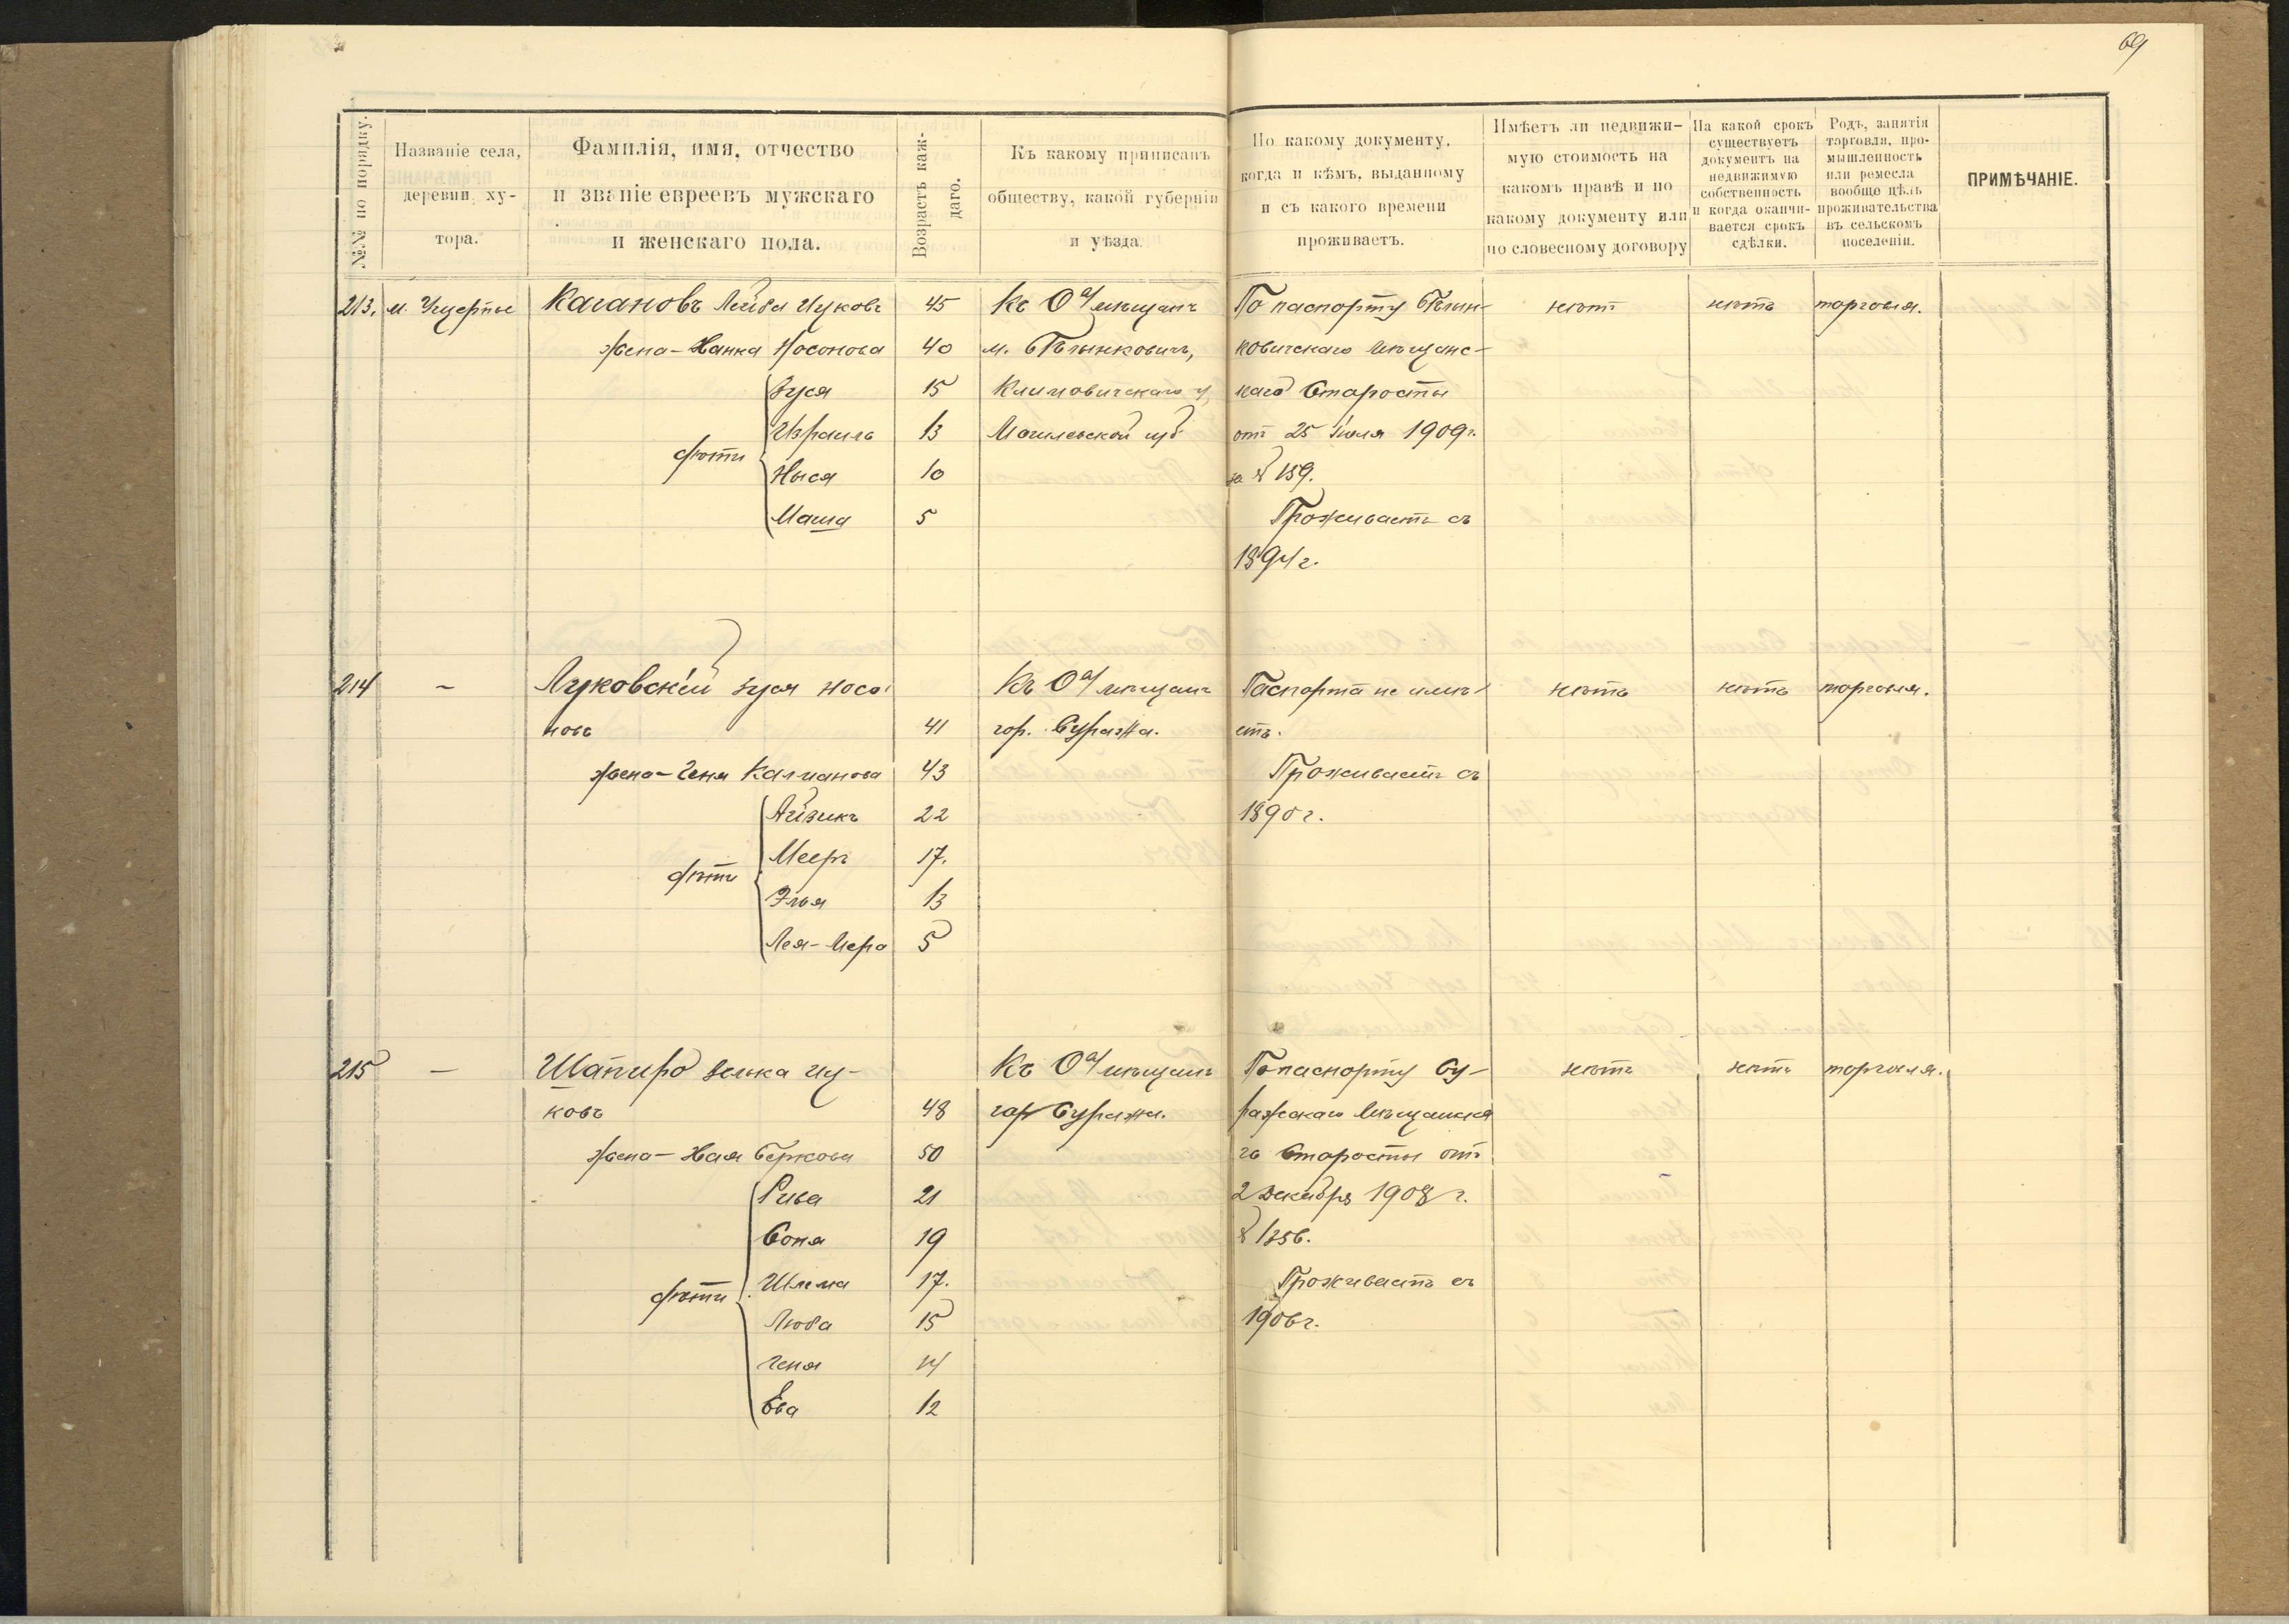 69
№№ по порядку.
Названіе села, деревни, ху-тора.
Фамилія, имя, отчество и званіе евреевъ мужскаго и женскаго пола.
Возрастъ каж-даго.
Къ какому приписанъ обществу, какой губерніи и уѣзда.
По какому документу, когда и кѣмъ, выданному и съ какого времени проживаетъ.
Имѣетъ ли недвижи-мую стоимость на какомъ правѣ и по какому документу или по словесному договору
На какой срокъ существуетъ документъ на недвижимую собственность и когда оканчи-вается срокъ сдѣлки.
Родъ, занятія торговля, про-мышленность или ремесла вообще цѣль проживательства въ сельскомъ поселеніи.
ПРИМѢЧАНІЕ.
213. м. Ущерпье Кагановъ Лейба Ицковъ 45 Къ О-ву мѣщанъ По паспорту Хотим- нѣтъ нѣтъ торговля.
жена - Ханка Носонова 40 м.
Зуся 15 Климовичскаго у. каго Старосты
Израиль 13 Могилевской губ отъ 25 Іюля 1909 г.
дѣти
Ныся 10 за № 159.
Маша 5 Проживаетъ съ
1894 г.
214 – Луковскій Зуся Носо- Къ О-ву мѣщанъ Паспорта не имѣ- нѣтъ нѣтъ торговля.
новъ 41 гор. Суража. етъ.
жена - Геня Калманова 43 Проживаетъ съ
Айзикъ 22 1890 г.
Мееръ 17.
дѣти
Элья 13
Лея-Мера 5
215 – Шапиро Зелька Иц- Къ О-ву мѣщанъ По паспорту Су- нѣтъ нѣтъ торговля.
ковъ 48 гор Суража. ражскаго Мѣщанска
жена - Хая Беркова 50 го Старосты отъ
Рива 21 2 Декабря 1908 г.
Соня 19 № 1356.
дѣти
Шлема 17. Проживаетъ съ
Люба 15 1906 г.
Геня 14
Ева 12